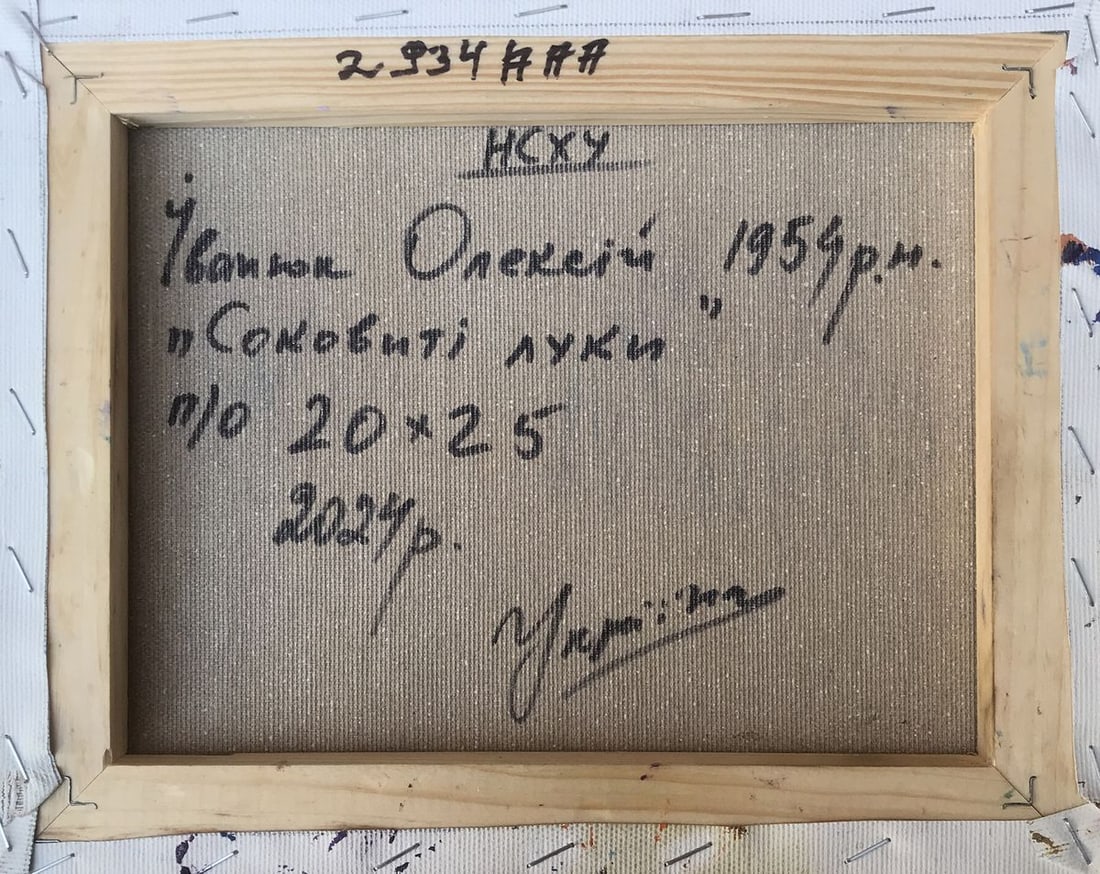 2934 ААА
НСХУ
Іванюк Олексій 1954р.н.
"Соковиті луки"
п/о 20×25
2024р.
Україна